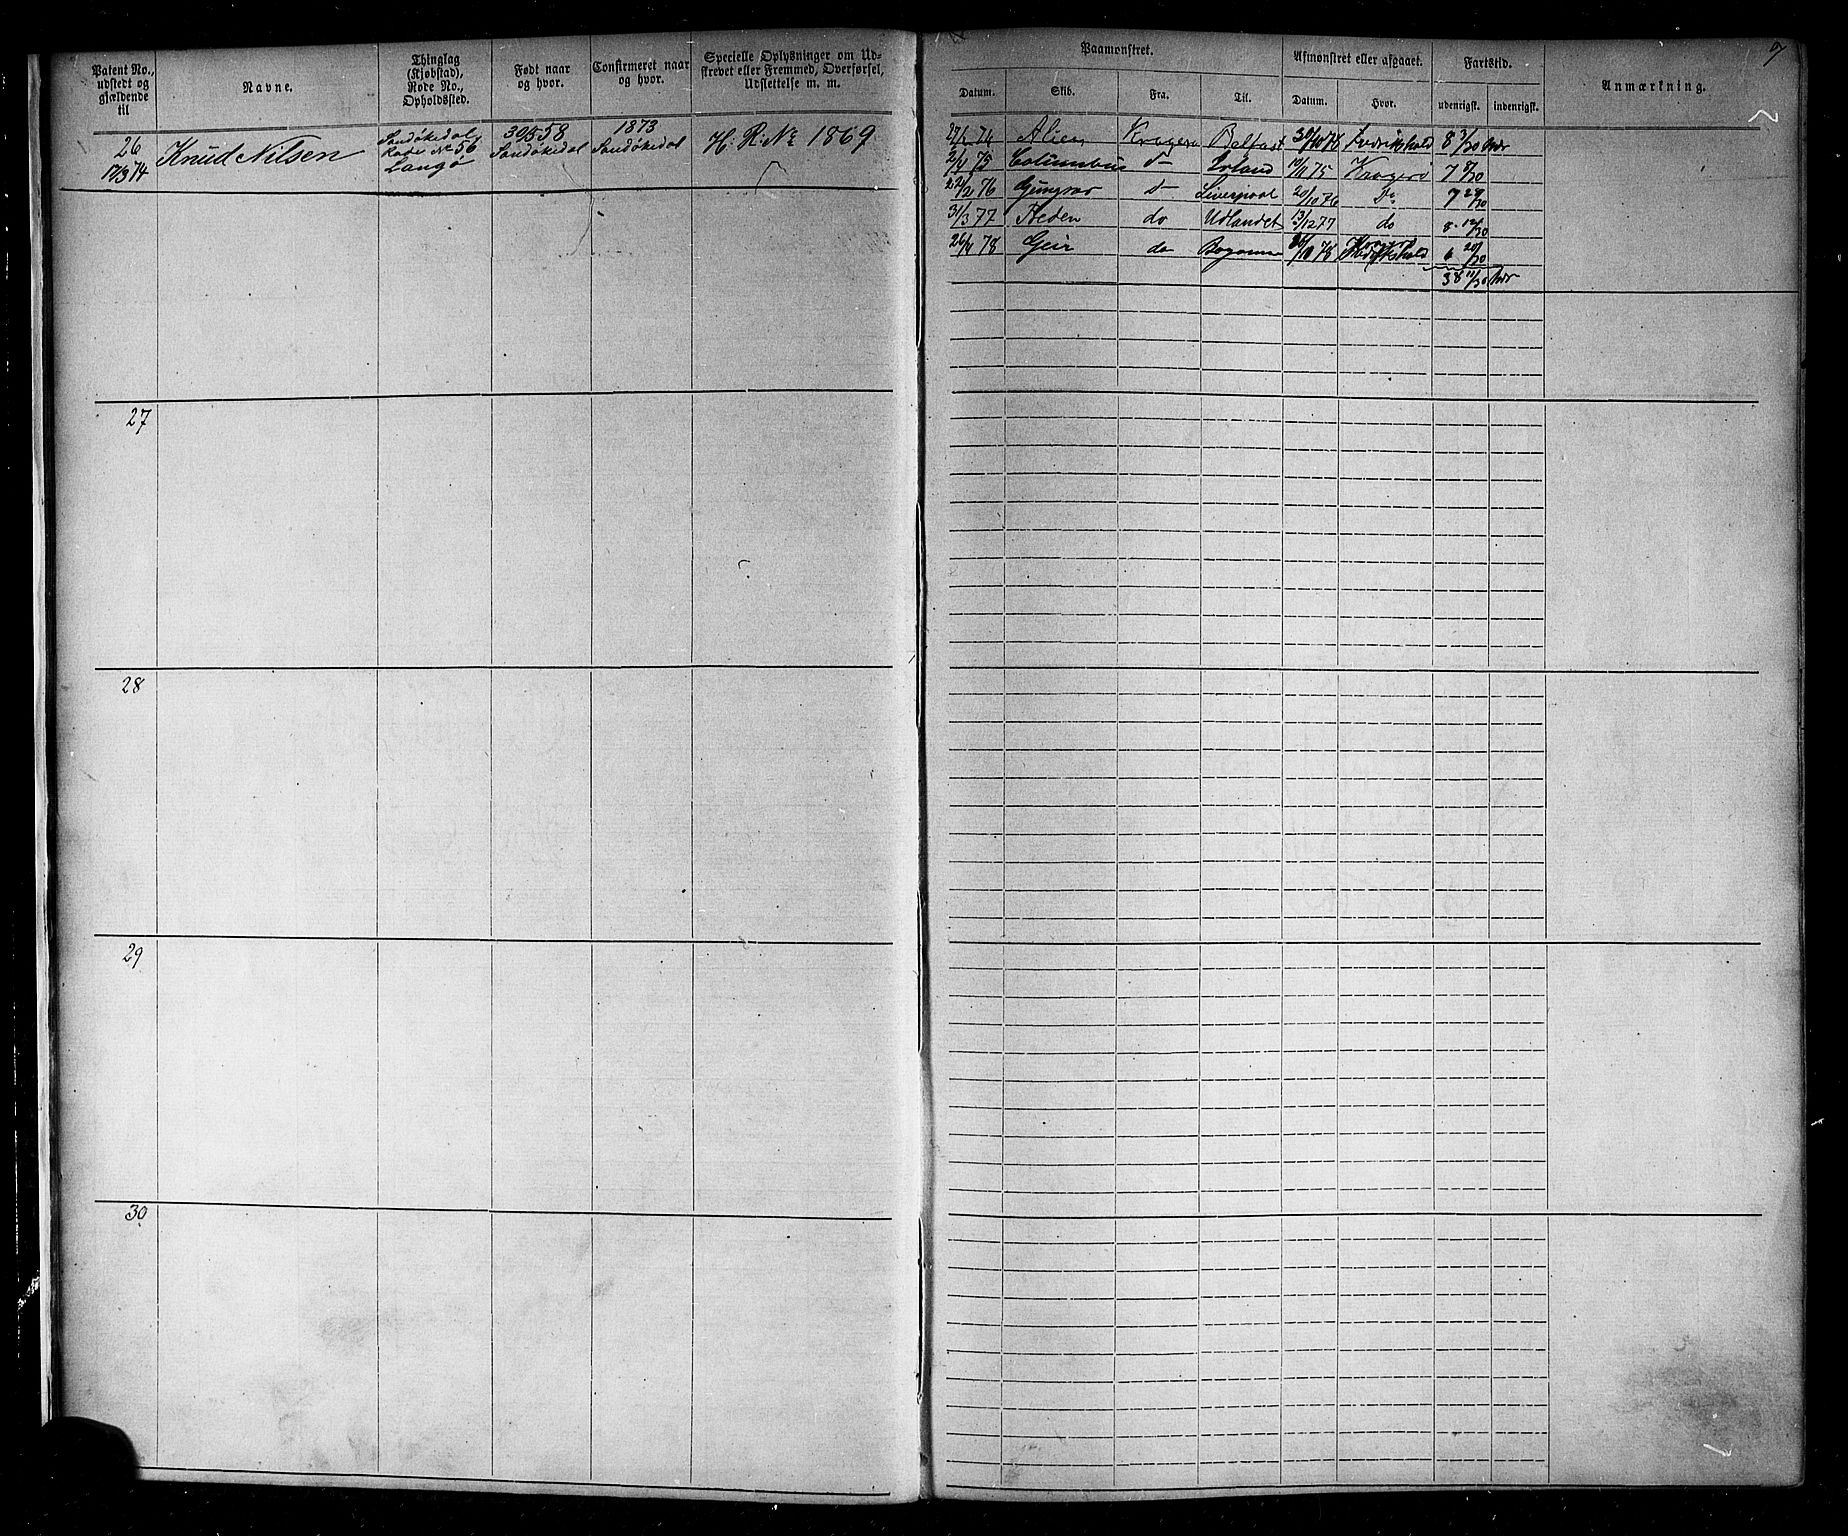 7
Patent No., udstedt og gjældende til
Navne.
Thinglag (Kjøbstad), Rode No., Opholdssted.
Født naar og hvor.
Confirmeret naar og hvor.
Specielle Oplysninger om Udstrevet eller Fremmed, Overførsel, Udslettelse m. m.
Paamønstret.
Afmønstret eller afgaaet.
Fartstid.
Anmærkning.
Datum.
Skib.
Fra.
Til.
Datum.
Hvor.
udenrigsk.
indenrigsk.
26
17/3 74
Knud Nilsen
Sandøkedal
Rode No 56
Langø
30/5 58
Sandøkedal
1873
Sandøkedal
H. R. No 1869
74 Alien Kragerø Belfast 30/10 74 Fredrikshald 8 3/30 Mdr
2/4 75 Columbus do Irland 10/11 75 Kragerø 7 8/30
22/2 76 Gungvar do Liverpool 20/10 76 Do 7 29/30
31/3 77 Heden do Udlandet 13/12 77 do 8 12/30
26/4 78 Geir do 78 Kragerø 6 20/30
38 11/30 Mdr
27
28
29
30